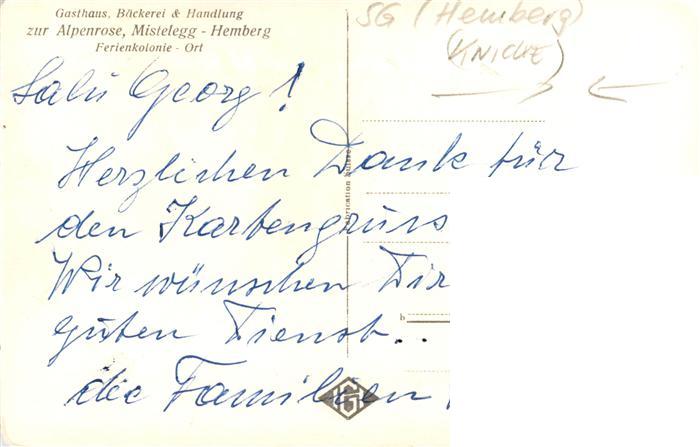 Gasthaus, Bäckerei & Handlung
zur Alpenrose, Mistelegg - Hemberg
Ferienkolonie - Ort
SG (Hemberg)
(KNICKE)
Salü Georg!
Herzlichen Dank für
den Kartengruss
Wir wünschen Dir
guten Dienst..
die Familien